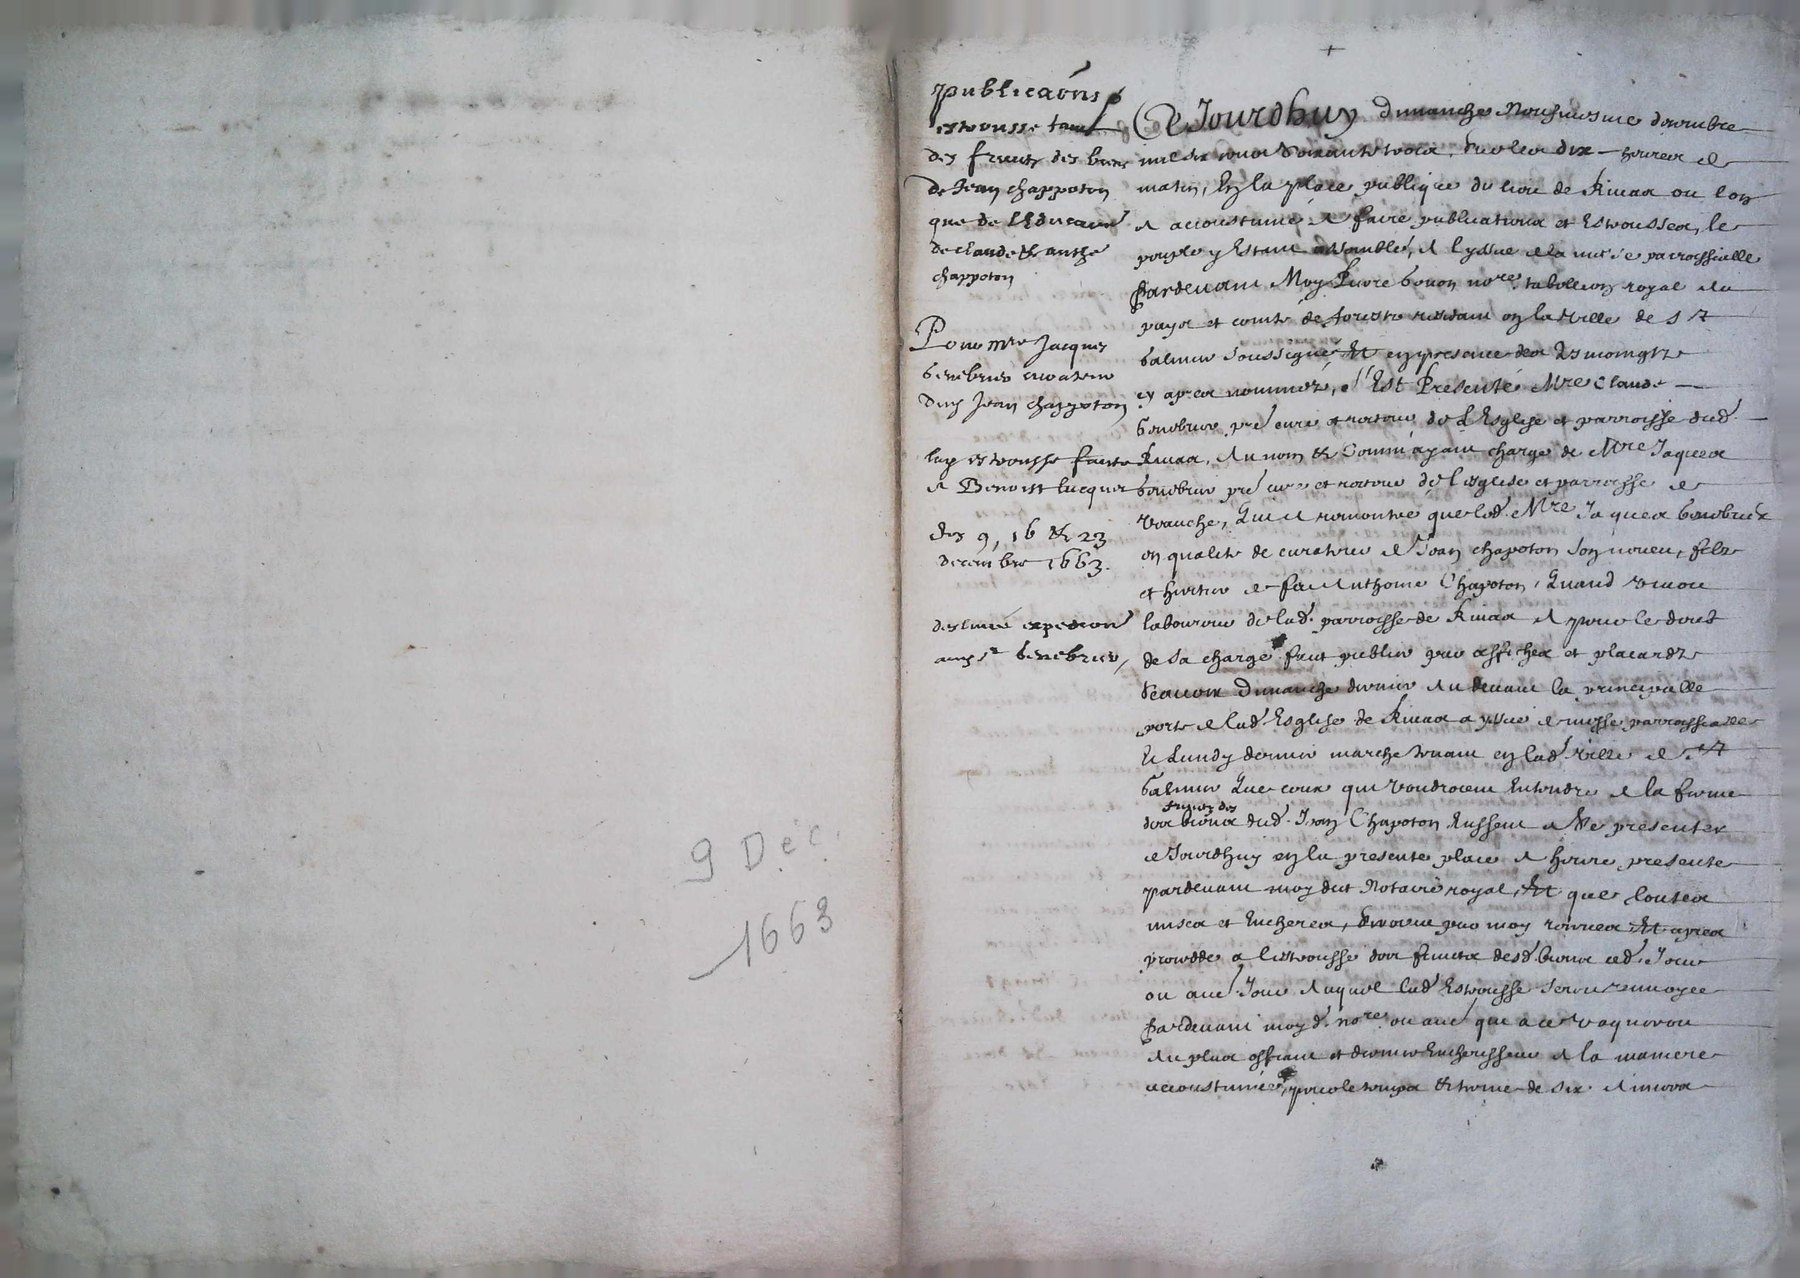 9 Déc.
1663
publicaõns
estrousse tant
des fruits des biens
de Jean chappoton
que de l'éducaõn
de claude & anthe
chappoton
Pour mre Jacques
benebrier curateur
dud Jean chappoton
lad estrousse faicte
a Benoist lucquet
des 9, 16 & 23
decembre 1663.
deslivré expediõn
aud sr benebrier,
Ce Jourdhuy dimanche neufviesme decembre
mil six cens soixante trois, sur les dix heures de
matin, En la place publique du lieu de Rivas ou lon
a accoustumé de faire publications et Estrousses, le
peuple y Estant assemblé, a lyssue de la messe parroissialle
Pardevant Moy Pierre bovon nore. tabellion royal du
pays et comté de forestz residant en la ville de St
Galmier soussigné Et en presence des tesmoingtz
cy apres nommez, s'Est Presenté Mre Claude
benebrier pre curé et recteur de L'Esglise et parroisse dud.
Rivas, Au nom & Comm' ayant charge de Mre Jaques
benebrier pre curé et recteur de l'esglise et parroisse de
Veauche, Qui a remontré que led. Mre Jaques benebrier
en qualité de curateur de Jean chapoton son nepveu, filz
et heritier de feu Anthoine Chapoton, Quand vivoit
laboureur de lad. parroisse de Rivas a pour le deub
de sa charge faict publier par affiches et placardz
scavoir dimanche dernier Au devant la principalle
porte de lad. Esglise de Rivas a yssue de messe parroissialle
Et Lundy dernier marché tenant en lad. ville de St
Galmier Que ceux qui voudroient Entendre a la ferme
fruictz des
des biens dud. Jean Chapoton Eussent a se presenter
ce Jourdhuy en la presente place a heure presente
pardevant moy dict Notaire royal, Et que toutes
mises et Encheres, seroient par moy receues Et apres
procedde a l'estrousse des fruicts desd. biens ced. Jour
ou au.e Jour Auquel lad. Estrousse seroit renvoyee
Pardevant moyd. nore. ou au.e que a ce vaqueroit
Au plus offrant et dernier Encherisseur a la maniere
accoustumée, pour le temps & terme de six Années